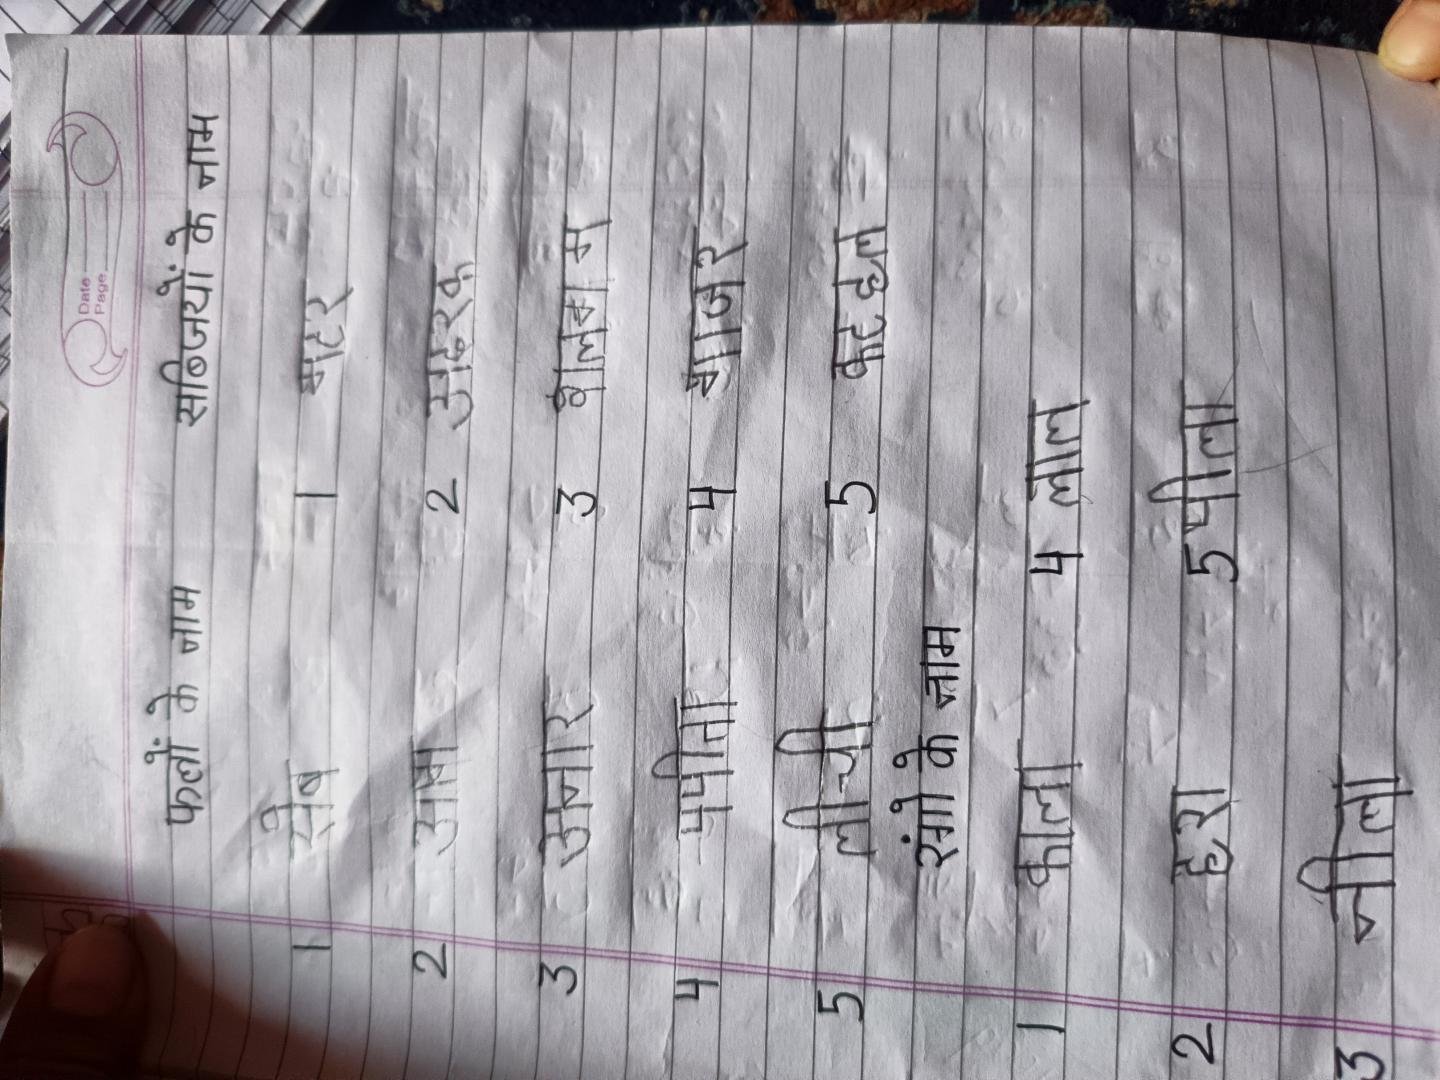 Date
Page
फलों के नाम सब्जियों के नाम
1 सेब 1 मटर
2 आम 2 अदरक
3 अनार 3
4 पपीता 4 गाजर
5 लीची 5 कटहल
रंगो के नाम
1 काला 4 लाल
2 हरा 5 पीला
3 नीला